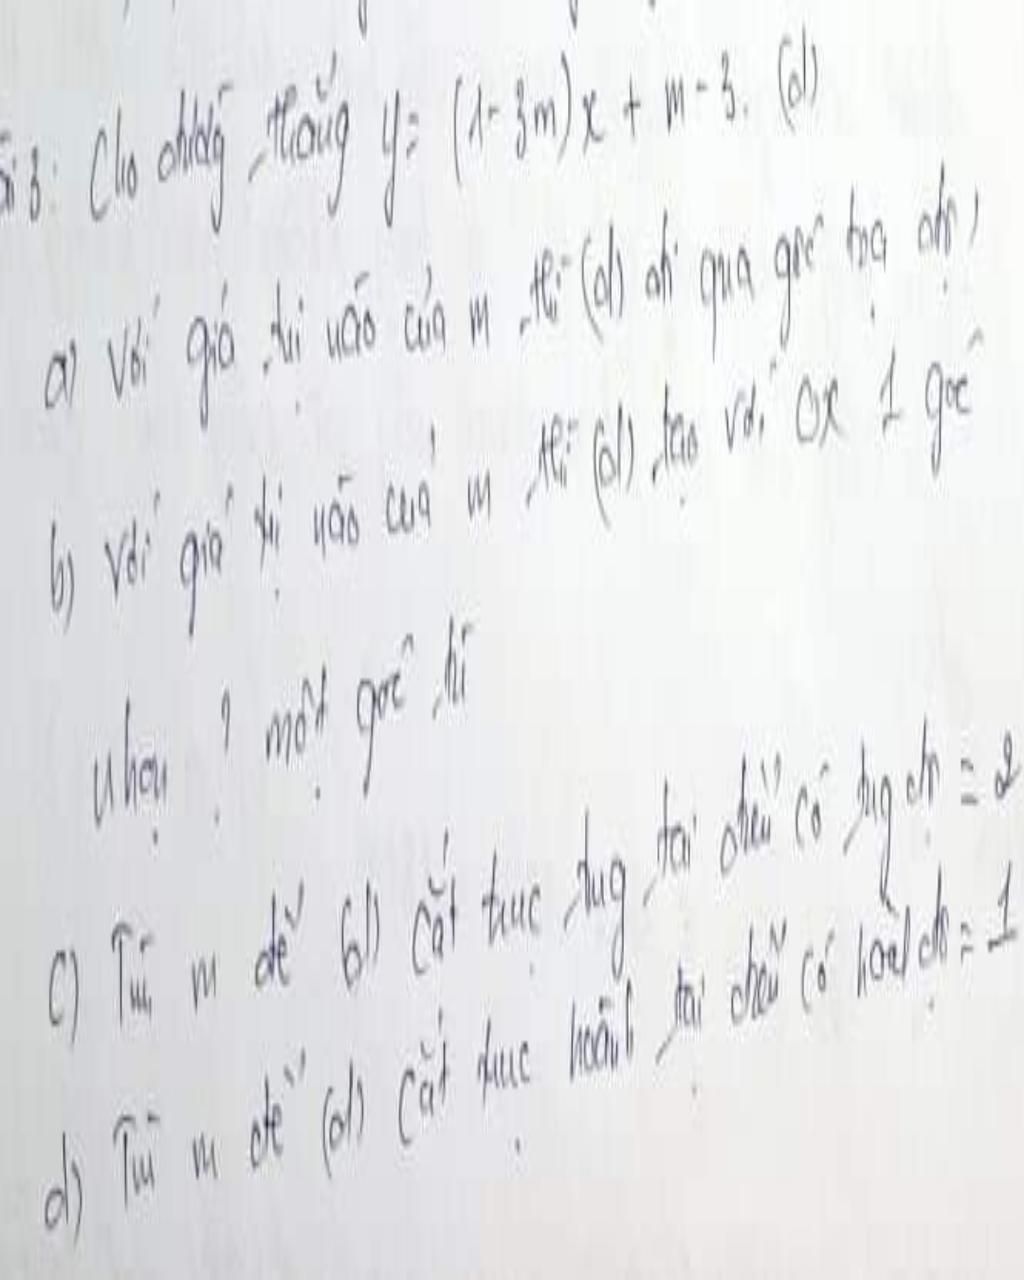 Bài 3: Cho đường thẳng y = (1-3m)x + m-3. (d)
a) Với giá trị nào của m thì (d) đi qua gốc tọa độ,
b) Với giá trị nào của m thì (d) tạo với Ox 1 góc
nhọn ? một góc tù
c) Tìm m để (d) cắt trục tung tại điểm có tung độ = 2
d) Tìm m để (d) cắt trục hoành tại điểm có hoành độ = 1